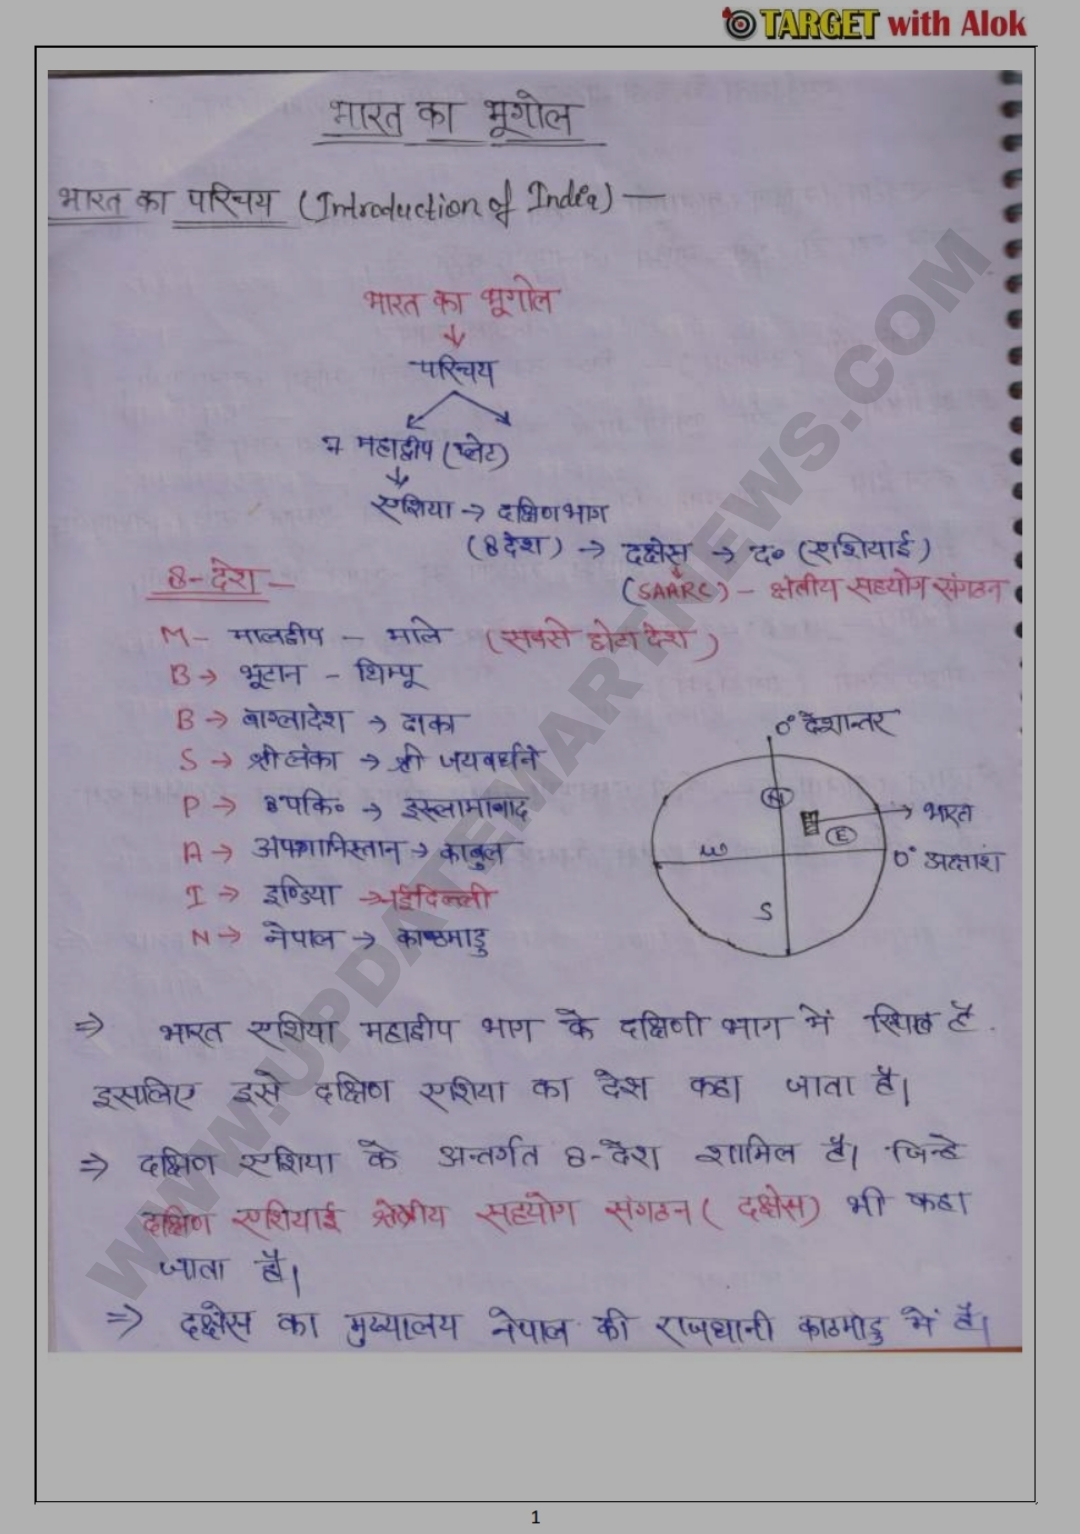 TARGET with Alok
भारत का भूगोल
भारत का परिचय (Introduction of India) —
भारत का भूगोल
↓
परिचय
७ महाद्वीप (प्लेट)
↓
एशिया → दक्षिण भाग
(8 देश) → दक्षेस → द० (एशियाई)
(SAARC) – क्षेत्रीय सहयोग संगठन
8-देश –
M – मालद्वीप – माले (सबसे छोटा देश)
B → भूटान – थिम्पू
B → बाग्लादेश → ढाका
S → श्री लंका → श्री जयवर्धने
P → पकि० → इस्लामाबाद
A → अफगानिस्तान → काबुल
I → इण्डिया → नईदिल्ली
N → नेपाल → काष्ठमाडु
0° देशान्तर
N
→ भारत
E
W
0° अक्षांश
S
⇒ भारत एशिया महाद्वीप भाग के दक्षिणी भाग में स्थित है.
इसलिए इसे दक्षिण एशिया का देश कहा जाता है।
⇒ दक्षिण एशिया के अन्तर्गत 8-देश शामिल है। जिन्हे
दक्षिण एशियाई क्षेत्रीय सहयोग संगठन (दक्षेस) भी कहा
जाता है।
⇒ दक्षेस का मुख्यालय नेपाल की राजधानी काठमाडु में है।
WWW.UPDATEMARTNEWS.COM
1